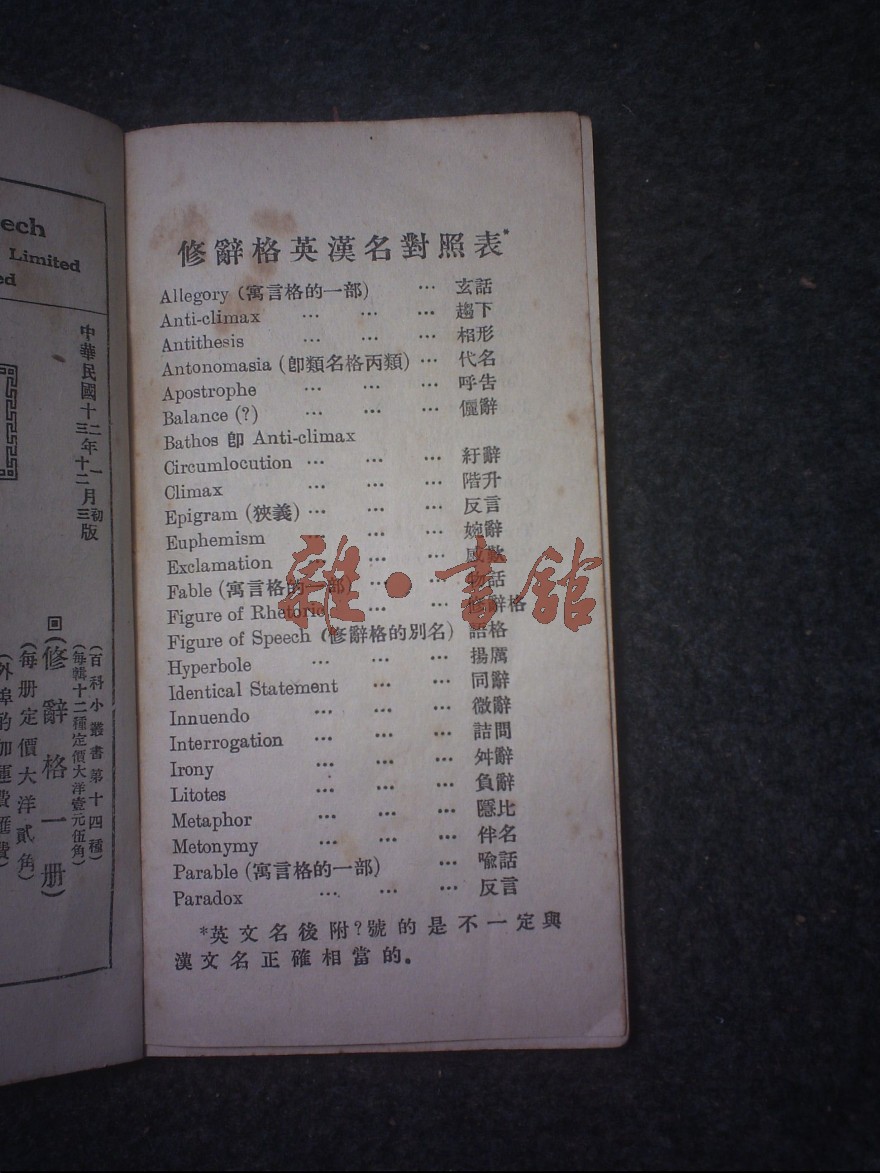 修辭格英漢名對照表*
Allegory (寓言格的一部) … 玄話
Anti-climax … … … 趨下
Antithesis … … … 相形
Antonomasia (卽類名格丙類) … 代名
Apostrophe … … … 呼告
Balance (?) … … … 儷辭
Bathos 卽 Anti-climax
Circumlocution … … … 紆辭
Climax … … … 階升
Epigram (狹義) … … … 反言
Euphemism … … … 婉辭
Exclamation … … … 感歎
Fable (寓言格的一部) … … 物話
Figure of Rhetoric … … 修辭格
Figure of Speech (修辭格的別名) 語格
Hyperbole … … … 揚厲
Identical Statement … … 同辭
Innuendo … … … 微辭
Interrogation … … … 詰問
Irony … … … 舛辭
Litotes … … … 負辭
Metaphor … … … 隱比
Metonymy … … … 伴名
Parable (寓言格的一部) … 喩話
Paradox … … … 反言
*英文名後附?號的是不一定與
漢文名正確相當的。
ech
Limited
ed
中華民國十二年一月初版
十三年十二月三版
(百科小叢書第十四種)
(每輯十二種定價大洋壹元伍角)
(修辭格一册)
(每册定價大洋貳角)
(外埠酌加運費匯費)
雜·書館